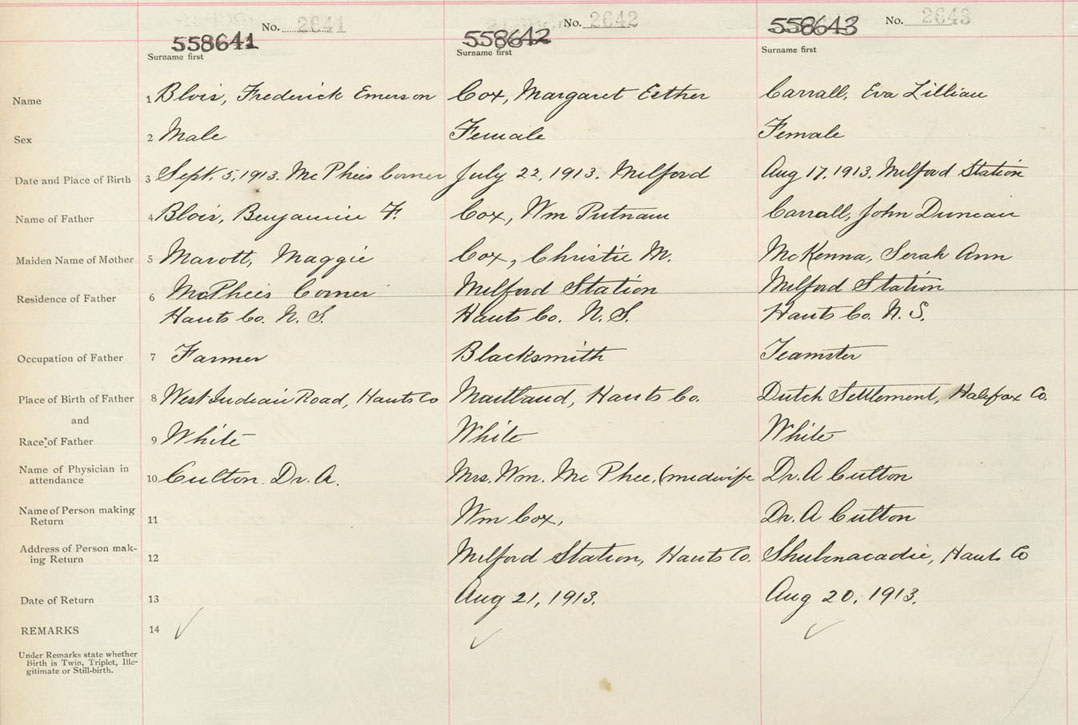 No. 2641
No. 2642
No. 2643
558641
558642
558643
Surname first
Surname first
Surname first
Name 1 Blois, Frederick Emerson Cox, Margaret Esther Carrall, Eva Lillian
Sex 2 Male Female Female
Date and Place of Birth 3 Sept. 5, 1913. McPhees Corner July 22, 1913. Milford Aug 17, 1913. Milford Station
Name of Father 4 Blois, Benjamine F. Cox, Wm Putnam Carrall, John Duncan
Maiden Name of Mother 5 Marott, Maggie Cox, Christie M. McKenna, Serah Ann
Residence of Father 6 McPhees Corner Milford Station Milford Station
Hants Co. N. S. Hants Co. N. S. Hants Co. N. S.
Occupation of Father 7 Farmer Blacksmith Teamster
Place of Birth of Father 8 West Indian Road, Hants Co Maitland, Hants Co. Dutch Settlement, Halifax Co.
and
Race of Father 9 White White White
Name of Physician in 10 Culton Dr. A. Mrs. Wm. Mc Phee, (midwife Dr. A Culton
attendance
Name of Person making
Return 11 Wm Cox, Dr. A Culton
Address of Person mak-
ing Return 12 Milford Station, Hants Co. Shubnacadie, Hants Co
Date of Return 13 Aug 21, 1913. Aug 20, 1913.
REMARKS 14 ✓ ✓ ✓
Under Remarks state whether
Birth is Twin, Triplet, Ille-
gitimate or Still-birth.